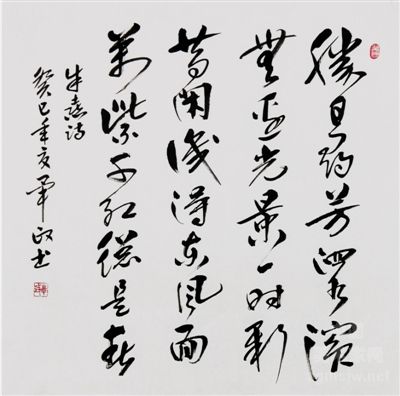 勝日尋芳泗水濱
無邊光景一時新
等閑識得東風面
萬紫千紅總是春
朱熹詩
癸巳年夏 書